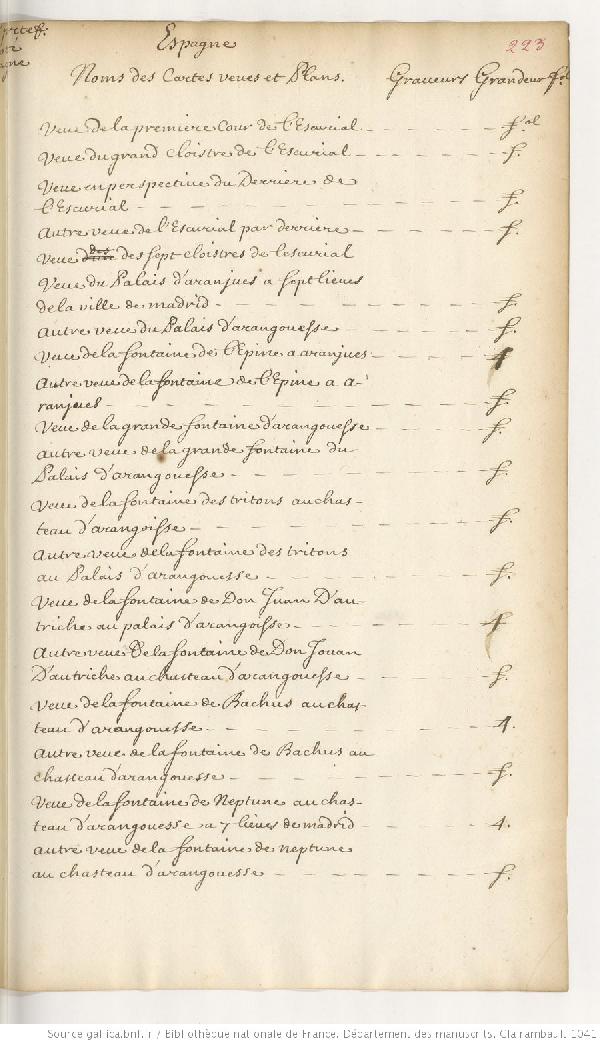 Espagne
223
Noms des Cartes veues et Plans. Graveurs Grandeur
Veue de la premiere Cour de l'Escurial f.ol
Veue du grand cloistre de l'Escurial f.
Veue en perspective du Derriere de
l'Escurial f.
Autre veue de l'Escurial par derriere f.
Veue des sept cloistres de lescurial
Veue du Palais d'aranjues a sept lieues
de la ville de madrid f.
autre veue du Palais d'arangouesse f.
Veue de la fontaine de l'Epine a aranjues 4
Autre veue de la fontaine de l'Epine a a-
ranjues f.
Veue de la grande fontaine d'arangouesse f.
autre veue de la grande fontaine du
Palais d'arangouesse f.
Veue de la fontaine des tritons au chas-
teau d'arangoisse f.
Autre veue de la fontaine des tritons
au Palais d'arangouesse f.
Veue de la fontaine de Don Juan D'au-
triche au palais d'arangoisse f
Autre veue de la fontaine de Don Jouan
D'autriche au chasteau d'arangouesse f.
Veue de la fontaine de Bachus au chas-
teau d'arangouesse 4.
Autre veue de la fontaine de Bachus au
chasteau d'arangouesse f.
Veue de la fontaine de Neptune au chas-
teau d'arangouesse a 7 lieues de madrid 4.
autre veue de la fontaine de neptune
au chasteau d'arangouesse f.
Source gallica.bnf.fr / Bibliothèque nationale de France. Département des manuscrits. Clairambault 1041